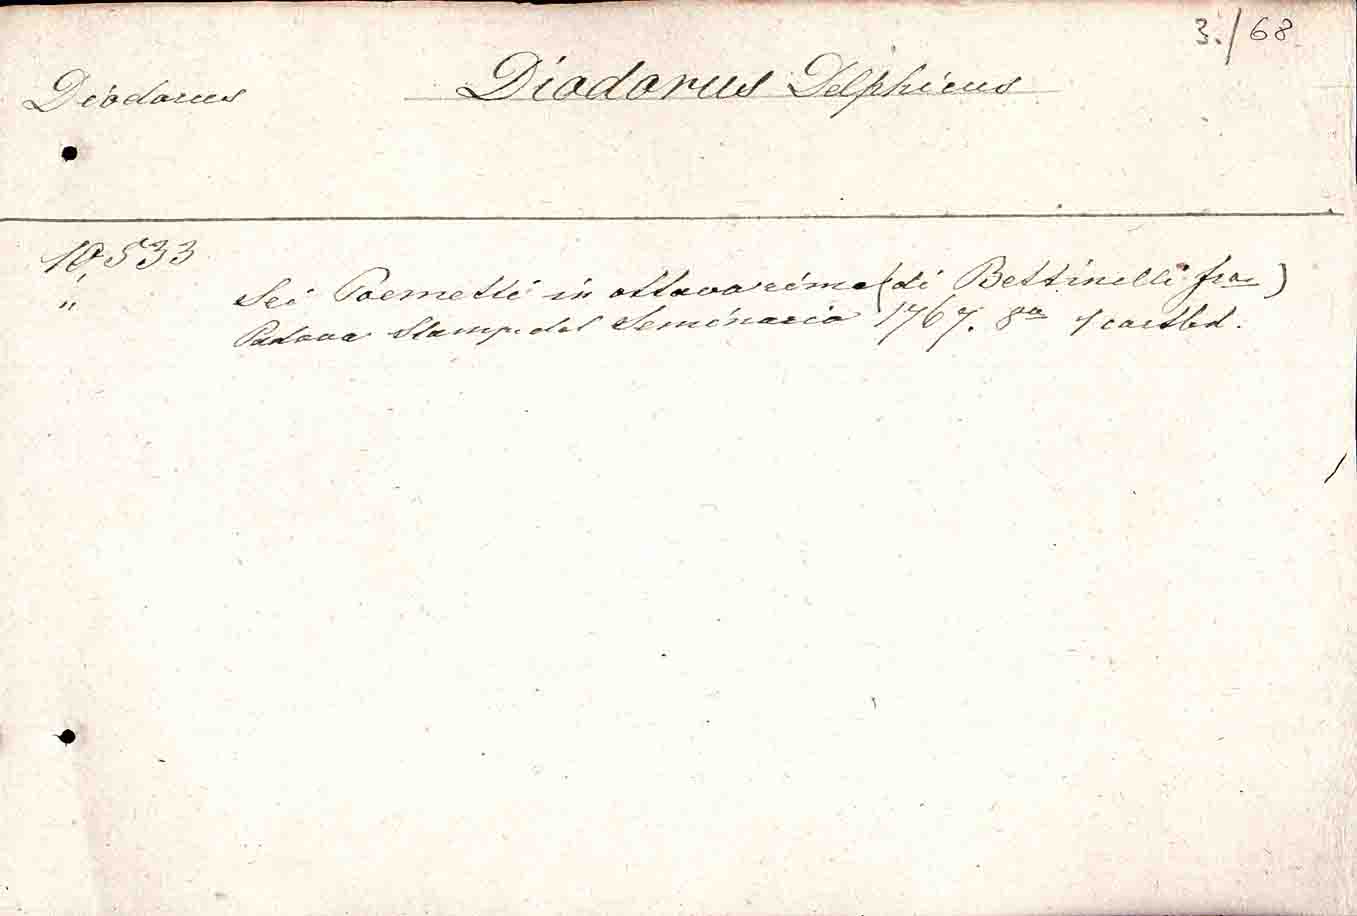 3./68
Diodorus Diodorus Delphicus
10,533
" Sei Poemetti in ottava rima (di Bettinelli)
Padova Stamp. del Seminario 1767. 8vo 1 cartbd.